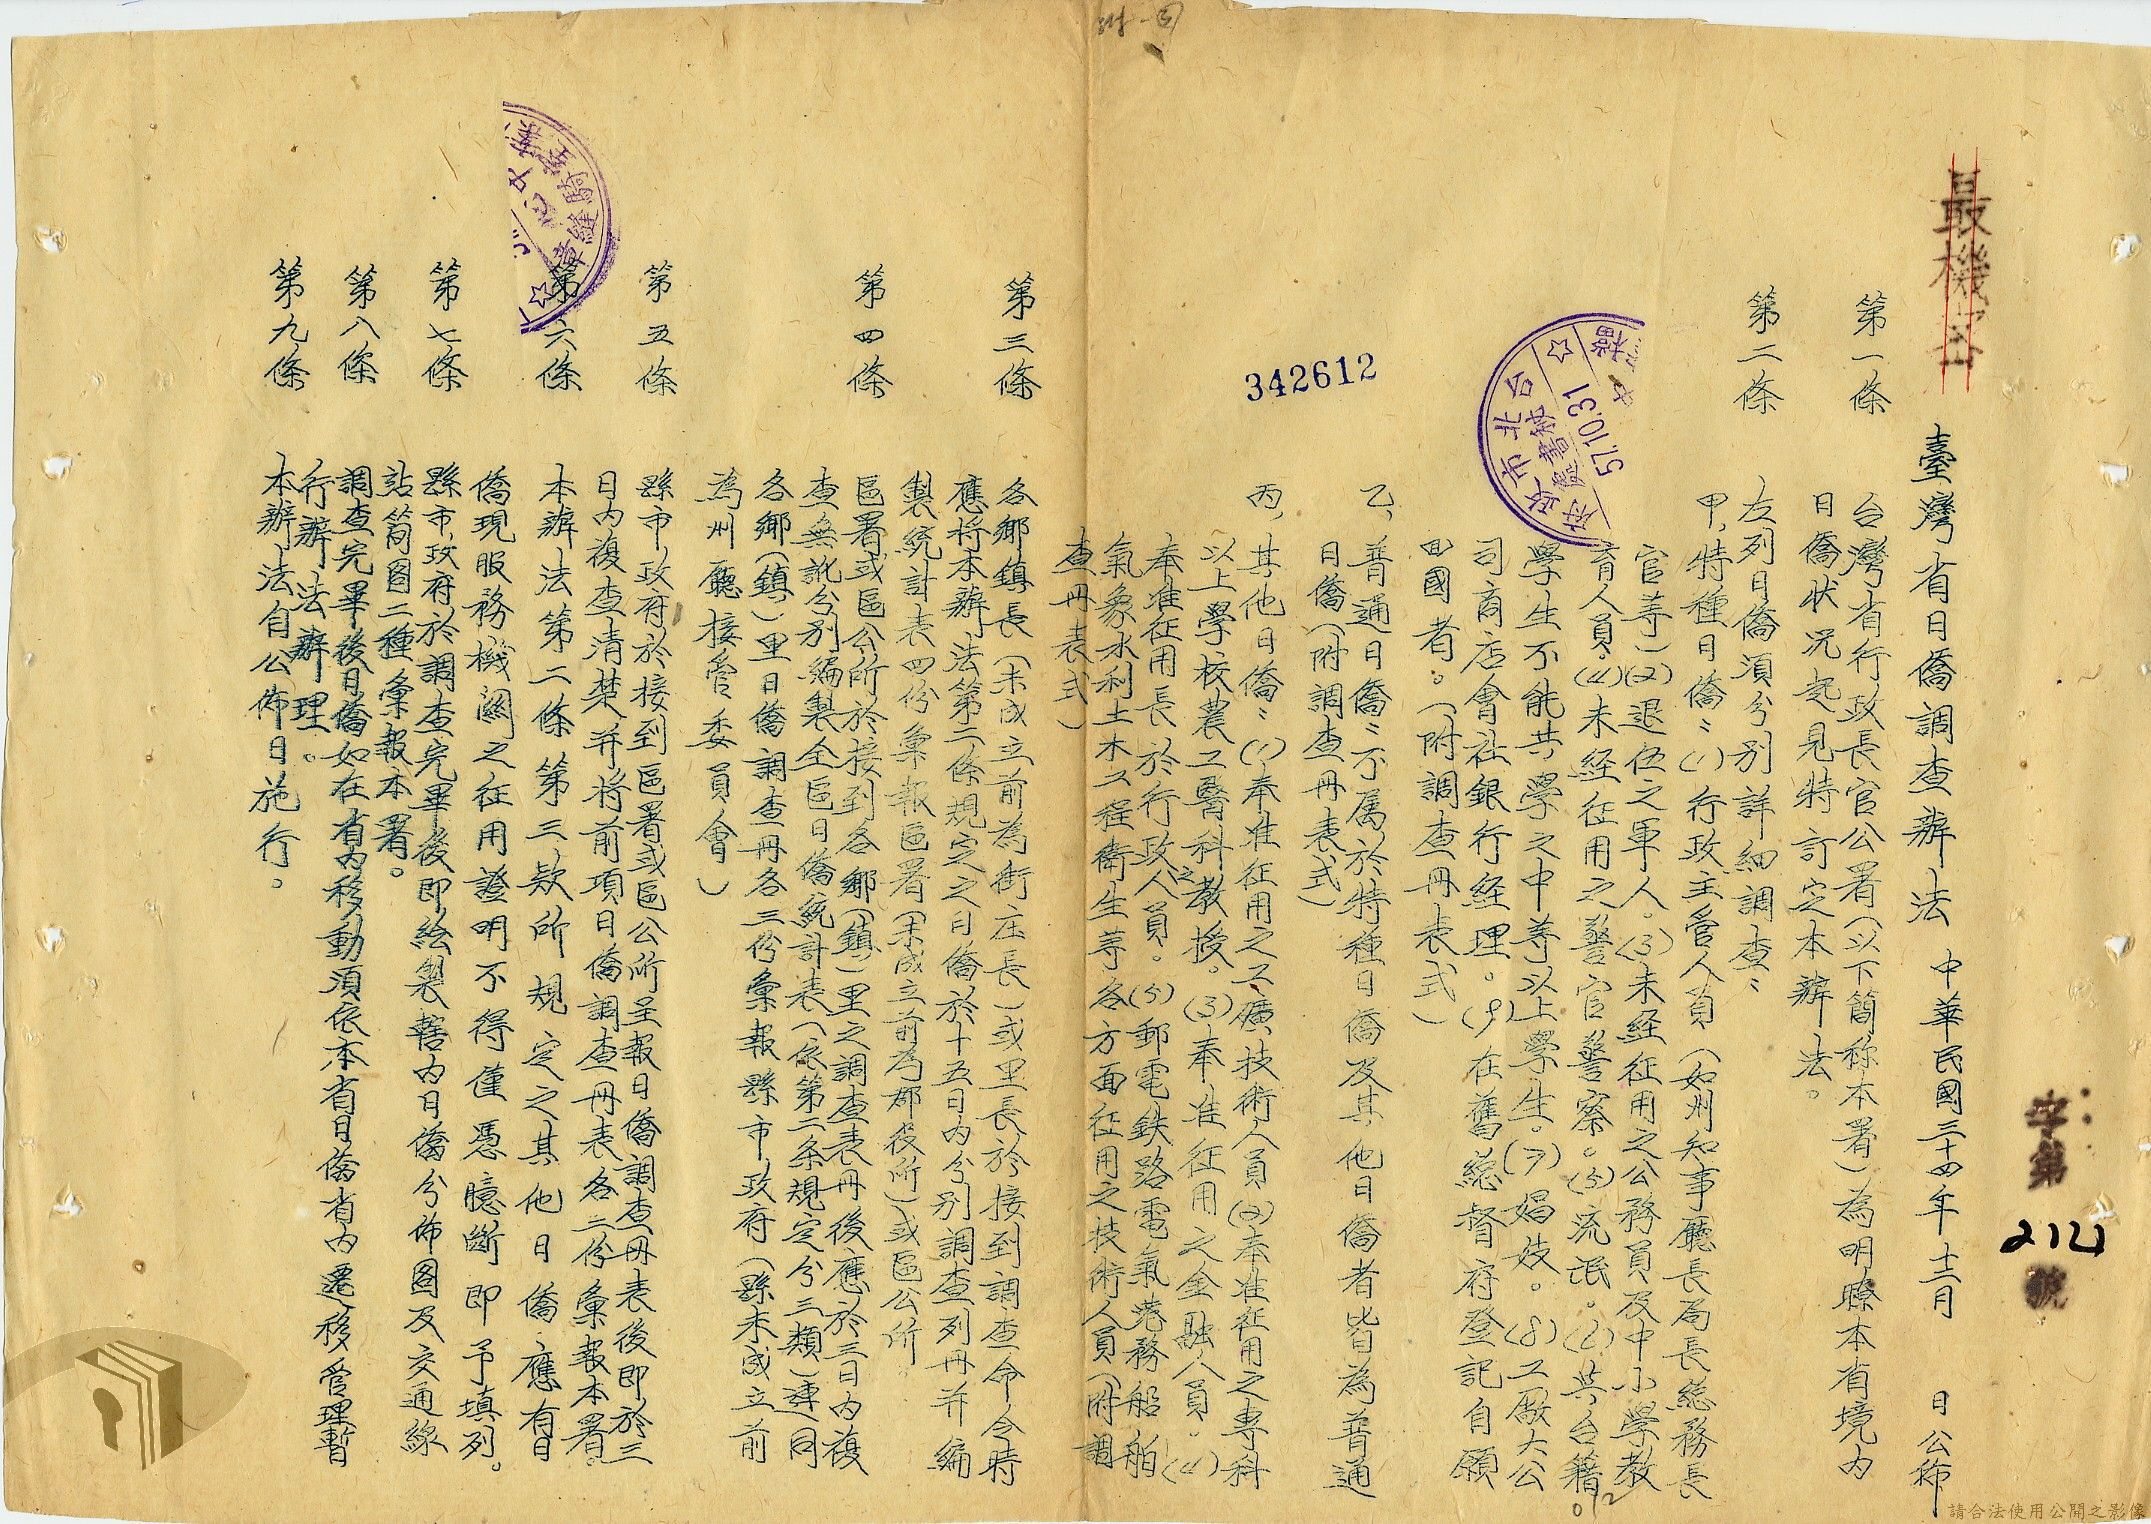 最機密
字第
212
號
臺灣省日僑調查辦法 中華民國三十四年十二月 日公佈
第一條 台灣省行政長官公署(以下簡称本署)為明瞭本省境內
日僑状况起見特訂定本辦法。
第二條 左列日僑須分別詳細調查:
甲、特種日僑:(1)行政主管人員(如州知事廳長局長總務長
官等)(2)退伍之軍人。(3)未経征用之公務員及中小學教
育人員。(4)未経征用之警官警察。(5)流氓。(6)與台籍
學生不能共學之中等以上學生。(7)娼妓。(8)工廠大公
司商店會社銀行経理。(9)在舊總督府登記自願
回國者。(附調查冊表式)
乙、普通日僑:不属於特種日僑及其他日僑者皆為普通
日僑(附調查冊表式)
丙、其他日僑:(1)奉准征用之工礦技術人員(2)奉准征用之專科
以上學校農工醫科之教授。(3)奉准征用之金融人員。(4)
奉准征用長於行政人員。(5)郵電鉄路電氣港務船舶
氣象水利土木工程衛生等各方面征用之技術人員(附調
查冊表式)
342612
台北市政府
秘書處
57.10.31
第三條 各鄉鎮長(未成立前為街庄長)或里長於接到調查命令時
應将本辦法第二條規定之日僑於十五日內分別調查列冊并編
製統計表四份彙報區署(未成立前為郡役所)或區公所。
第四條 區署或區公所於接到各鄉(鎮)里之調查表冊後應於三日內複
查無訛分別編製全區日僑統計表(依第二条規定分三類)連同
各鄉(鎮)里日僑調查冊各三份彙報縣市政府(縣未成立前
為州廳接管委員會)
第五條 縣市政府於接到區署或區公所呈報日僑調查冊表後即於三
日內複查清楚并将前項日僑調查冊表各二份彙報本署。
第六條 本辦法第二條第三款所規定之其他日僑應有日
僑現服務機關之征用證明不得僅憑臆斷即予填列。
第七條 縣市政府於調查完畢後即絵製轄內日僑分佈圖及交通線
站簡圖二種彙報本署。
第八條 調查完畢後日僑如在省內移動須依本省日僑省內遷移管理暫
行辦法辦理。
第九條 本辦法自公佈日施行。
請合法使用公開之影像